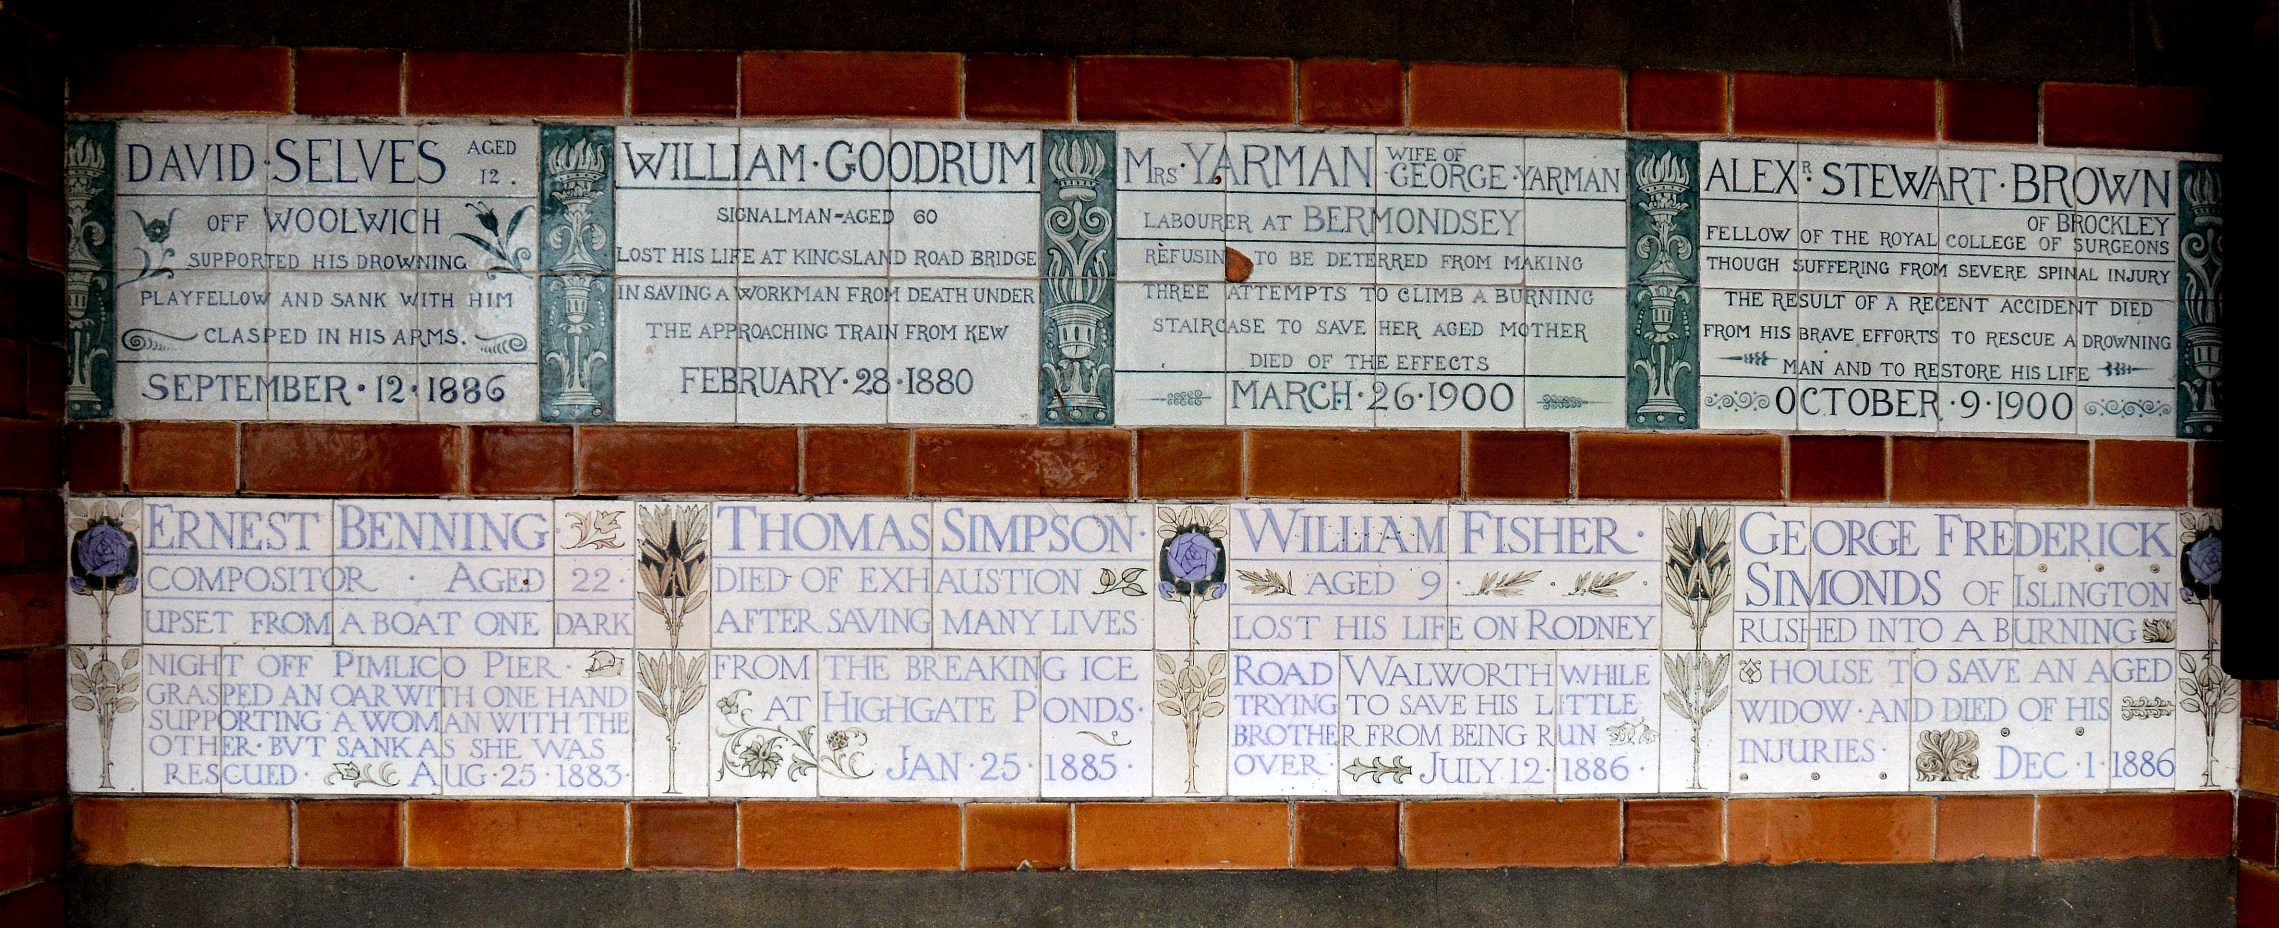 DAVID·SELVES AGED 12.
OFF WOOLWICH
SUPPORTED HIS DROWNING
PLAYFELLOW AND SANK WITH HIM
CLASPED IN HIS ARMS.
SEPTEMBER·12·1886
WILLIAM·GOODRUM
SIGNALMAN-AGED 60
LOST HIS LIFE AT KINGSLAND ROAD BRIDGE
IN SAVING A WORKMAN FROM DEATH UNDER
THE APPROACHING TRAIN FROM KEW
FEBRUARY·28·1880
MRS·YARMAN WIFE OF GEORGE·YARMAN
LABOURER AT BERMONDSEY
REFUSIN TO BE DETERRED FROM MAKING
THREE ATTEMPTS TO CLIMB A BURNING
STAIRCASE TO SAVE HER AGED MOTHER
DIED OF THE EFFECTS
MARCH·26·1900
ALEXR·STEWART·BROWN
OF BROCKLEY
FELLOW OF THE ROYAL COLLEGE OF SURGEONS
THOUGH SUFFERING FROM SEVERE SPINAL INJURY
THE RESULT OF A RECENT ACCIDENT DIED
FROM HIS BRAVE EFFORTS TO RESCUE A DROWNING
MAN AND TO RESTORE HIS LIFE
OCTOBER·9·1900
ERNEST BENNING·
COMPOSITOR · AGED 22·
UPSET FROM A BOAT ONE DARK
NIGHT OFF PIMLICO PIER·
GRASPED AN OAR WITH ONE HAND
SUPPORTING A WOMAN WITH THE
OTHER·BVT SANK AS SHE WAS
RESCUED· AUG·25·1883·
THOMAS SIMPSON·
DIED OF EXHAUSTION
AFTER SAVING MANY LIVES
FROM THE BREAKING ICE
AT HIGHGATE PONDS·
JAN·25·1885·
WILLIAM FISHER·
AGED 9·
LOST HIS LIFE ON RODNEY
ROAD WALWORTH WHILE
TRYING TO SAVE HIS LITTLE
BROTHER FROM BEING RUN
OVER· JULY 12·1886·
GEORGE FREDERICK
SIMONDS OF ISLINGTON
RUSHED INTO A BURNING
HOUSE TO SAVE AN AGED
WIDOW·AND DIED OF HIS
INJURIES· DEC·1·1886